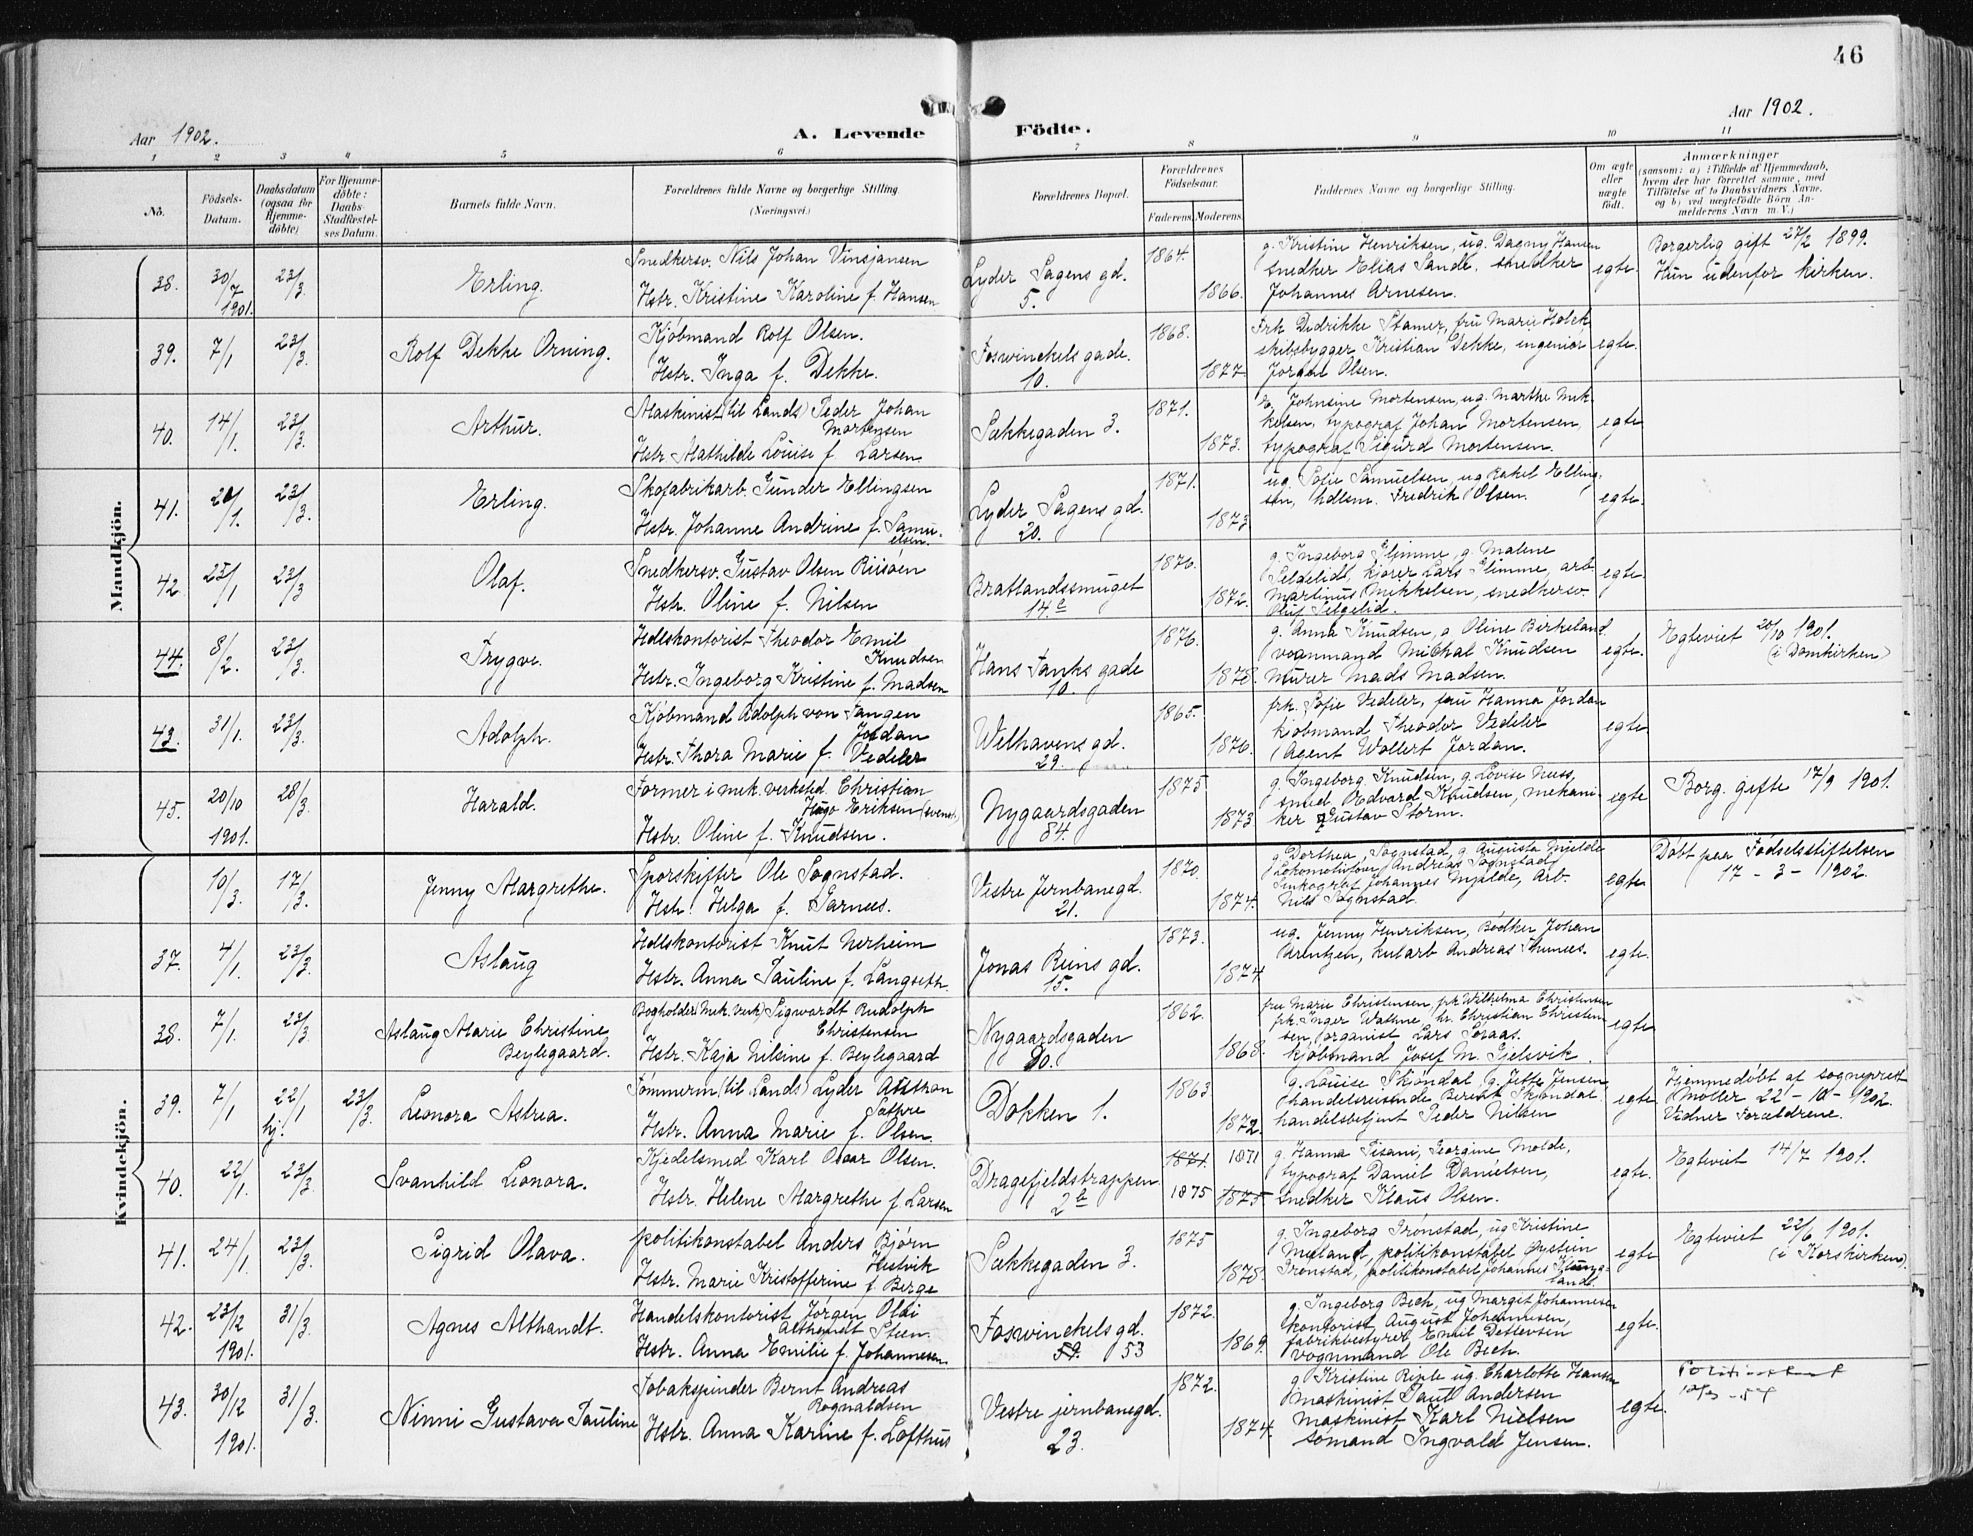 46
Aar 1902.
A. Levende Födte.
Aar 1902.
1 2 3 4 5 6 7 8 9 10 11
No.
Födsels-Datum.
Daabsdatum (ogsaa for Hjemmedöbte)
For Hjemmedöbte: Daabs-Stadfæstelses Datum.
Barnets fulde Navn.
Forældrenes fulde Navne og borgerlige Stilling.
(Næringsvei.)
Forældrenes Bopæl.
Forældrenes Födselsaar.
Faderens. Moderens.
Faddernes Navne og borgerlige Stilling.
Om ægte eller uægte födt.
Anmærkninger
(saasom: a) i Tilfælde af Hjemmedaab, hvem der har forrettet samme, med Tilföielse af to Daabsvidners Navne, og b) ved uægtefödte Börn Anmelderens Navn m. V.)
Mandkjön.
38. 30/7 1901. 23/3. Erling.
Snedkersv. Nils Johan Vinsjansen
Hstr. Kristine Karoline f. Hansen
Lyder Sagens gd. 5.
1864. 1866.
g. Kristine Henriksen, ug. Dagny Hansen
snedker Elias Sande, snedker
Johannes Arnesen.
egte.
Borgerlig gift 27/2 1899.
Hun udenfor kirken.
39. 7/1. 23/3. Rolf Dekke Orning.
Kjøbmand Rolf Olsen.
Hstr. Inga f. Dekke.
Foswinckels gade. 10.
1868. 1877.
Frk Didrikke Stamer, fru Marie Holck
skibsbygger Kristian Dekke, ingeniør
Jørgen Olsen.
egte.
40. 14/1. 23/3. Arthur.
Maskinist (til Lands) Peder Johan
Mortensen
Hstr. Mathilde Louise f. Larsen
Sækkegaden 3.
1871. 1873.
Johnsine Mortensen, ug. Marthe Mik-
kelsen, typograf Johan Mortensen,
typograf Sigurd Mortensen.
egte
41. 20/1. 23/3. Erling.
Skofabrikarb. Gunder Ellingsen
Hstr. Johanne Andrine f. Samu-
elsen.
Lyder Sagens gd. 20.
1871. 1873
ug. Sofie Samuelsen, ug Rakel Elling-
sen, hdlsm. Fredrik Olsen.
egte.
42. 25/1 23/3 Olaf.
Snedkersv. Gustav Olsen Riisøen
Hstr. Oline f. Nilsen
Bratlandssmuget 14 c
1876. 1872.
g. Ingeborg Glimme, g. Malene
Selgelid, kjører Lars Glimme, arb
Martinus Mikkelsen, snedkersv.
Oluf Selgelid.
egte.
44. 8/2. 23/3. Trygve.
Hdlskontorist Theodor Emil
Knudsen
Hstr. Ingeborg Kristine f. Madsen
Hans Tanks gade 10
1876. 1878.
g. Anna Knudsen, g Oline Birkeland
vognmand Michal Knudsen
murer Mads Madsen.
egte.
Egteviet 20/10 1901.
(i Domkirken)
43. 31/1. 23/3. Adolph.
Kjøbmand Adolph von Tangen
Jordan
Hstr. Thora Marie f. Vedeler
Welhavens gd. 29.
1865. 1876.
frk. Sofie Vedeler, fru Hanna Jordan
kjøbmand Theodor Vedeler
Agent Wollert Jordan.
egte
45. 20/10 1901. 28/3. Harald.
Former i mek. verksted. Christian
Hugo Eriksen (svensk)
Hstr. Oline f. Knudsen.
Nygaardsgaden 84.
1875 1873
g. Ingeborg Knudsen, g. Lovise Ness,
smed Edvard Knudsen, mekani-
ker Gustav Storm.
egte
Borg. gifte 17/9 1901.
Kvindekjön.
10/3. 17/3. Jenny Margrethe.
Sporskifter Ole Sognstad.
Hstr. Helga f. Garnes.
Vestre Jernbanegd. 21.
1870. 1874.
g. Dorthea Sognstad, g Augusta Mjelde
Lokomotivfører Andreas Sognstad,
Sinkograf Johannes Mjelde, Arb.
Nils Sognstad.
egte
Døbt paa Fødselsstiftelsen
17 - 3 - 1902.
37. 4/1. 23/3. Aslaug
Hdlskontorist Knut Nerheim
Hstr. Anna Pauline f. Langseth.
Jonas Reins gd. 15.
1873. 1874
ug. Jenny Henriksen, Bødker Johan
Arentzen, kularb Andreas Thunes.
egte.
38. 7/1. 23/3 Aslaug Marie Christine
Beylegaard.
Bogholder (Mek. Verk) Sigwardt Rudolph
Christensen
Hstr. Kaja Nilsine f. Beylegaard
Nygaardsgaden 90.
1862. 1868.
fru Marie Christensen, frk Wilhelma Christensen
frk. Inger Wathne, hr. Christian Christen-
sen, organist Lars Søraas.
kjøbmand Josef M. Gjelsvik.
egte.
39. 7/1 22/1 hj. 23/3. Leonora Astrea.
Tømmerm. (til Lands) Lyder
Sathre
Hstr. Anna Marie f. Olsen.
Dokken 1.
1863 1872.
g. Louise Skjøndal, g. Jette Jensen
handelsreisende Berent Skjøndal.
handelsbetjent Peder Nilsen
egte
Hjemmedøbt af sogneprest
Møller 22 - 10 - 1902.
Vidner Forældrene.
40. 22/1. 23/3. Svanhild Leonora.
Kjedelsmed Karl Oscar Olsen.
Hstr. Helene Margrethe f. Larsen
Dragefjeldstrappen 2 b
1871. 1871
1875 1875
g. Hanna Pisani, Georgine Molde,
typograf Daniel Danielsen,
snedker Klaus Olsen.
egte.
Egteviet 14/7 1901.
41. 24/1. 23/3. Sigrid Olava.
politikonstabel Anders Bjørn
Hestvik
Hstr. Marie Kristofferine f. Berge
Sækkegaden 3.
1875 1878.
g. Ingeborg Irønstad, ug Kristine
Meland, politikonstabel Øystein
Irønstad, politikonstabel Johannes Klung-
land.
egte
Egteviet 22/6 1901.
(i Korskirken).
42. 23/12 1901. 31/3. Agnes Althandt.
Handelskontorist Jørgen Olai
Althandt Steen.
Hstr. Anna Emilie f. Johannesen
Foswinckels gd. 59. 53
1872. 1869.
g. Ingeborg Bech, ug Margit Johannesen
kontorist August Johannesen,
fabrikbestyrer Emil Detlevsen
Vognmand Ole Bech.
egte.
43. 30/12 1901. 31/3. Ninni Gustava Pauline
Tobakspinder Bernt Andreas
Rognaldsen
Hstr. Anna Karine f. Lofthus
Vestre jernbanegd. 23.
1872. 1874.
g Kristine Riple ug. Charlotte Hansen
Maskinist Paul Andersen
Maskinist Karl Nielsen
Sømand Ingvald Jensen.
egte.